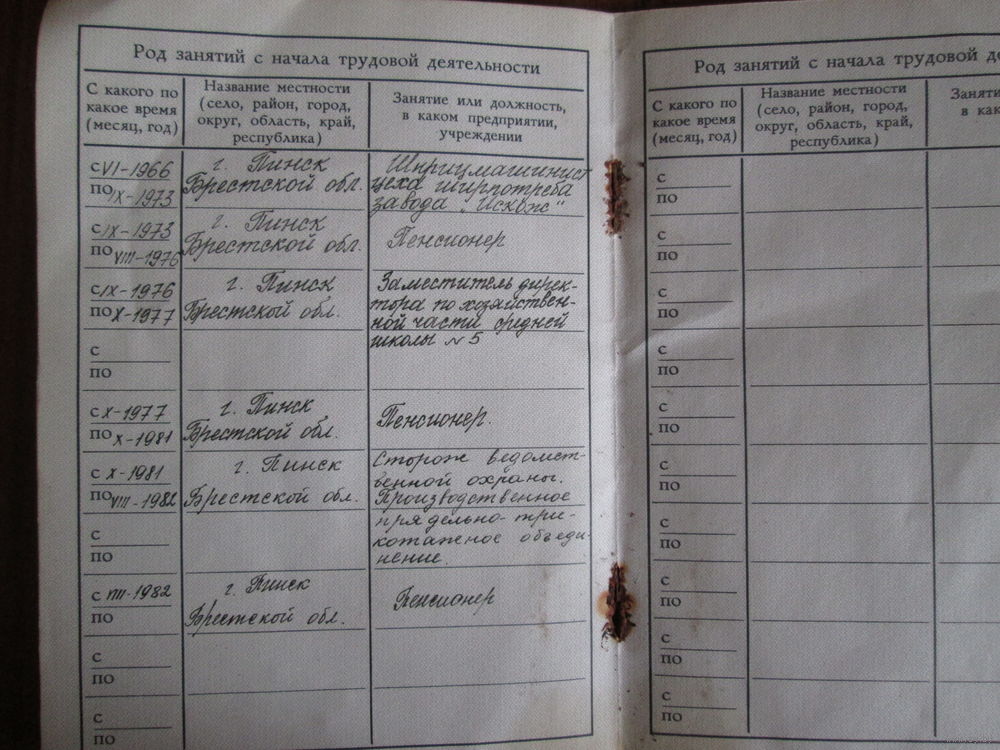 Род занятий с начала трудовой деятельности
С какого по
какое время
(месяц, год)
Название местности
(село, район, город,
округ, область, край,
республика)
Занятие или должность,
в каком предприятии,
учреждении
с VI-1966
по IX-1973
г. Пинск
Брестской обл.
Шприцмашинист
цеха ширпотреба
завода „Искож"
с IX-1973
по VIII-1976
г. Пинск
Брестской обл.
Пенсионер
с IX-1976
по X-1977
г. Пинск
Брестской обл.
Заместитель дирек-
тора по хозяйствен-
ной части средней
школы №5
с
по
с X-1977
по X-1981
г. Пинск
Брестской обл.
Пенсионер.
с X-1981
по VIII-1982
г. Пинск
Брестской обл.
Сторож ведомст-
венной охраны.
Производственное
прядельно-три-
котажное объеди-
нение.
с
по
с VIII-1982
по
г. Пинск
Брестской обл.
Пенсионер
с
по
с
по
Род занятий с начала трудовой
С какого по
какое время
(месяц, год)
Название местности
(село, район, город,
округ, область, край,
республика)
в
с
по
с
по
с
по
с
по
с
по
с
по
с
по
с
по
с
по
с
по